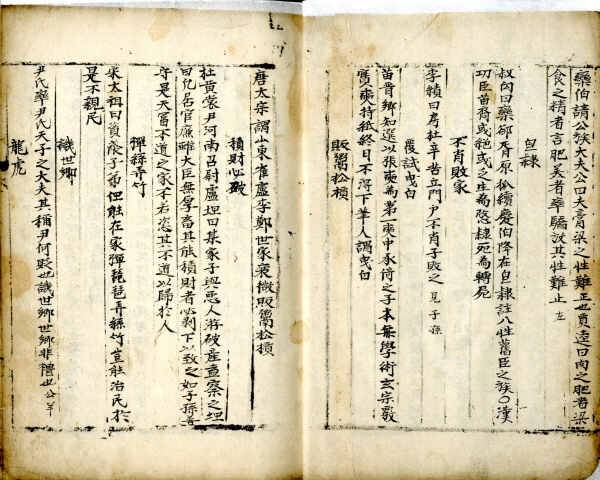 欒伯請公族大夫公曰夫膏粱之性難正也賈逵曰肉之肥者粱
食之精者言肥美者率驕放其性難止 左
皂隸
叔向曰欒郤胥原狐續慶伯降在皂隸註八姓舊臣之族〇漢
功臣苗裔或絶或乏生為愍隸死為轉屍
不肖敗家
李勣曰房杜辛苦立門戶不肖子敗之 見子孫
覆試曳白
苗晋卿知選以張奭為第一奭中丞倚之子本無學術玄宗覆
實奭持紙終日不得下筆人謂曳白
販鬻松檟
唐太宗謂山東崔盧李鄭世家衰微販鬻松檟
積財必破
杜黃裳尹河南召尉盧坦曰某家子與惡人游破産盍察之坦
曰凡居官廉雖大臣無厚畜其能積財者必剥下以致之如子孫善
守是天富不道之家不若恣其不道以歸於人
彈絲弄竹
宋太祖曰資蔭子弟但能在家彈琵琶弄絲竹豈能治民於
是不親民
譏世卿
尹氏卒尹氏天子之大夫其稱尹何貶也譏世卿世卿非禮也公羊
龍虎